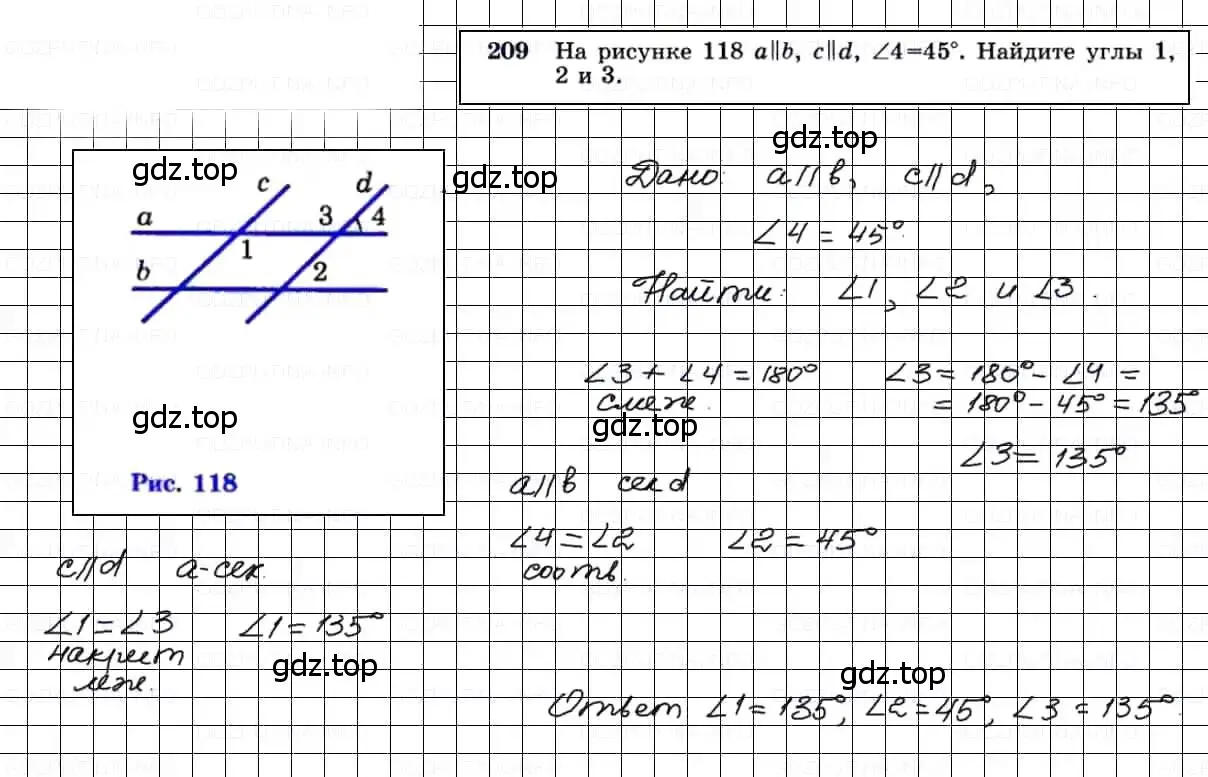 209 На рисунке 118 a∥b, c∥d, ∠4=45°. Найдите углы 1,
2 и 3.
gdz.top
gdz.top
gdz.top
c d
a 3 4
1
b 2
gdz.top
Рис. 118
Дано: a∥b, c∥d,
∠4 = 45°.
Найти: ∠1, ∠2 и ∠3.
∠3 + ∠4 = 180° ∠3 = 180° - ∠4 =
смеж. = 180° - 45° = 135°
gdz.top
∠3 = 135°
a∥b сек d
∠4 = ∠2 ∠2 = 45°
соотв.
c∥d a-сек.
∠1 = ∠3 ∠1 = 135°
накрест
леж.
gdz.top
gdz.top
Ответ: ∠1 = 135°, ∠2 = 45°, ∠3 = 135°.